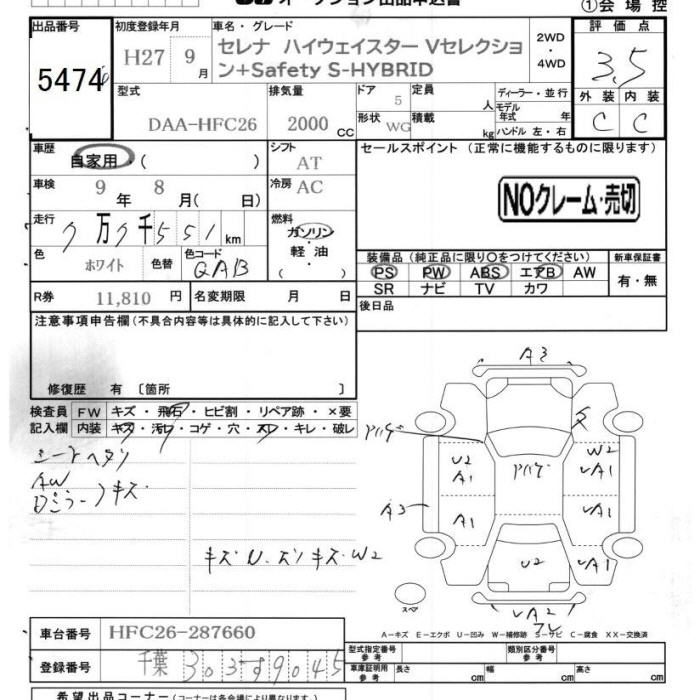 オークション出品申込書
①会場控
出品番号
5474
初度登録年月
H27 9月
車名・グレード
セレナ ハイウェイスター Vセレクショ
ン+Safety S-HYBRID
2WD
・
4WD
評価点
3.5
外装 内装
C C
型式
DAA-HFC26
排気量
2000 CC
ドア 5
形状 WG
定員 人
積載 kg
ディーラー・並行
モデル年式 年
ハンドル 左・右
車歴
自家用・( )
シフト AT
車検
9年 8月( 日)
冷房 AC
走行
7万7千551km
燃料
ガソリン
・
軽油
( ・ )
色
ホワイト
色替
色コード
QAB
R券 11,810 円
名変期限 月 日
セールスポイント (正常に機能するものに限ります)
NOクレーム・売切
装備品 (純正品に限り〇をつけてください)
PS PW ABS エアB AW
SR ナビ TV カワ
新車保証書
有・無
後日品
注意事項申告欄 (不具合内容等は具体的に記入して下さい)
修復歴 有 〔箇所 〕
検査員
記入欄
FW キズ・飛石・ヒビ割・リペア跡・×要
内装 キズ・汚レ・コゲ・穴・スレ・キレ・破レ
シートヘタリ
AW
Dミラー キズ
キズ U. スリキズ. W2
A3
U2
A1
W2
A1
A3
A1
A1
U2
A2
スペア
A-キズ E-エクボ U-凹み W-補修跡 S-サビ C-腐食 XX-交換済
車台番号 HFC26-287660
登録番号 千葉 303 9045
型式指定番号
参考
類別区分番号
参考
車庫証明用
参考
長さ cm 幅 cm 高さ cm
希望出品コーナー (コーナーは各会場により異なります)